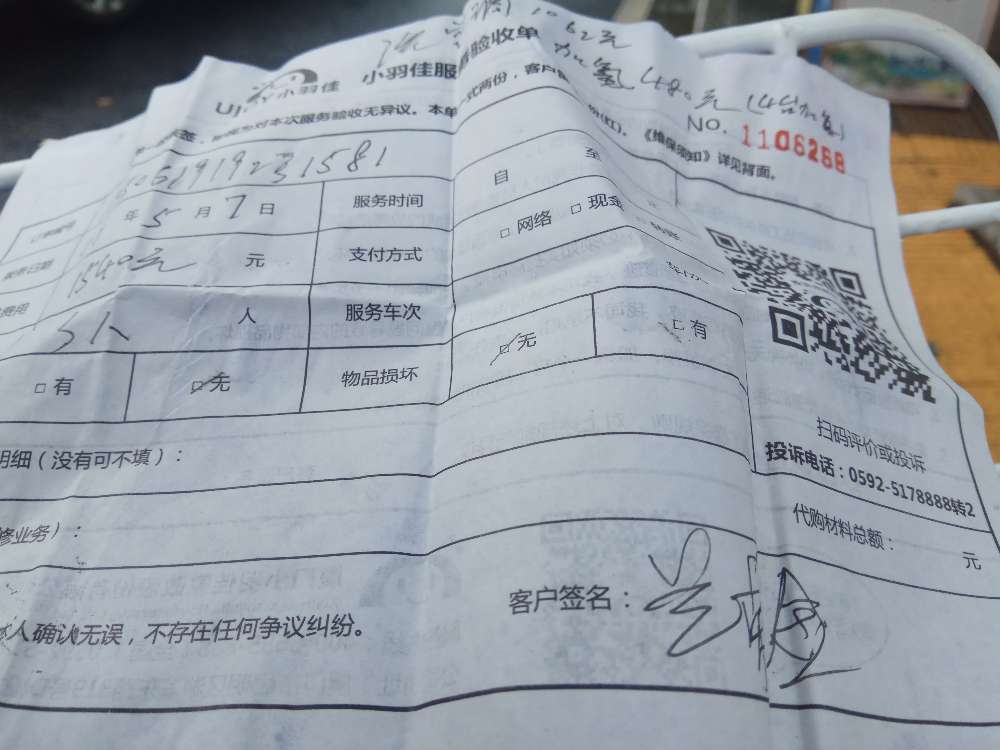 1062元
小羽佳 小羽佳服 验收单
加氟480元(4台加氟)
NO. 1106268
对本次服务验收无异议。本单 式两份,客户 (红)。《维保须知》详见背面。
年5月7日 服务时间 自 至
1540元 元 支付方式 □网络 □现金
3人 人 服务车次
□有 □无 物品损坏 □无 □有
明细(没有可不填):
扫码评价或投诉
投诉电话:0592-5178888转2
修业务): 代购材料总额: 元
人确认无误,不存在任何争议纠纷。 客户签名: